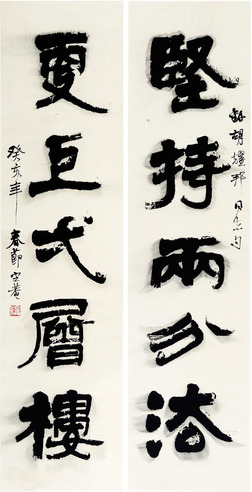 堅持兩分法
錄胡耀邦同志句
更上弌層樓
癸亥年春節